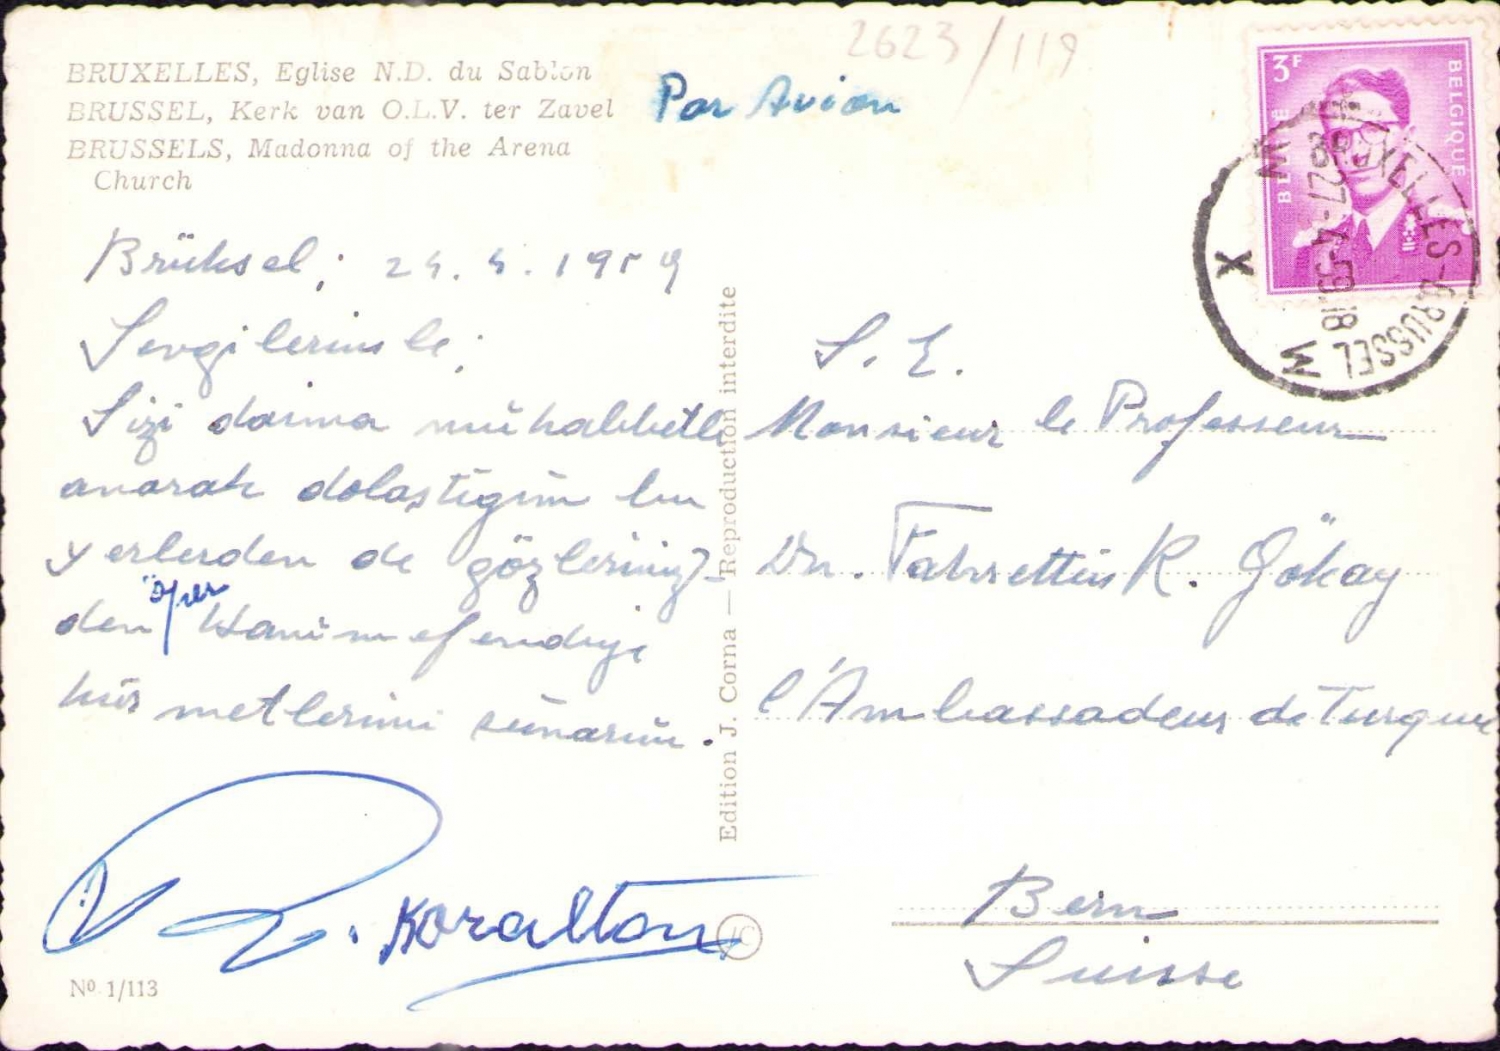 BRUXELLES, Eglise N.D. du Sablon
BRUSSEL, Kerk van O.L.V. ter Zavel
BRUSSELS, Madonna of the Arena
Church
Par Avion
2623/119
3F
BELGIE BELGIQUE
BRUXELLES-BRUSSEL
27-4-59.18
X
Brüksel; 24.4.1959
Sevgilerimle;
Sizi daima mühabbetle
anarak dolaştığım bu
yerlerden de gözleriniz-
den öper Hanımefendiye
hürmetlerimi sünarım.
R. Koraltan
Nº 1/113
Edition J. Corna — Reproduction interdite
S. E.
Monsieur le Professeur
Dr. Fahrettin K. Gökay
l'Ambassadeur de Turquie
Bern
Suisse